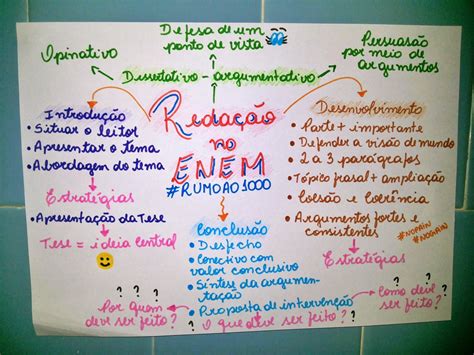 Defesa de um
ponto de vista
Opinativo
Persuasão
por meio de
argumentos
Dissertativo - argumentativo
Redação
no
ENEM
#RUMOAO1000
Introdução
• Situar o leitor
• Apresentar o tema
• Abordagem do tema
Estratégias
• Apresentação da Tese
Tese = ideia central
Desenvolvimento
• Parte + importante
• Defender a visão de mundo
• 2 a 3 parágrafos
• Tópico frasal + ampliação
• Coesão e Coerência
• Argumentos fortes e
consistentes
#NOPAIN
#NOGAIN
Estratégias
Conclusão
• Desfecho
• Conectivo com
valor conclusivo
• Síntese da argumen-
tação
• Proposta de intervenção
? ? ?
Por quem
deve ser feito?
? ? ?
O que deve ser feito?
? ? ?
Como deve
ser feito?